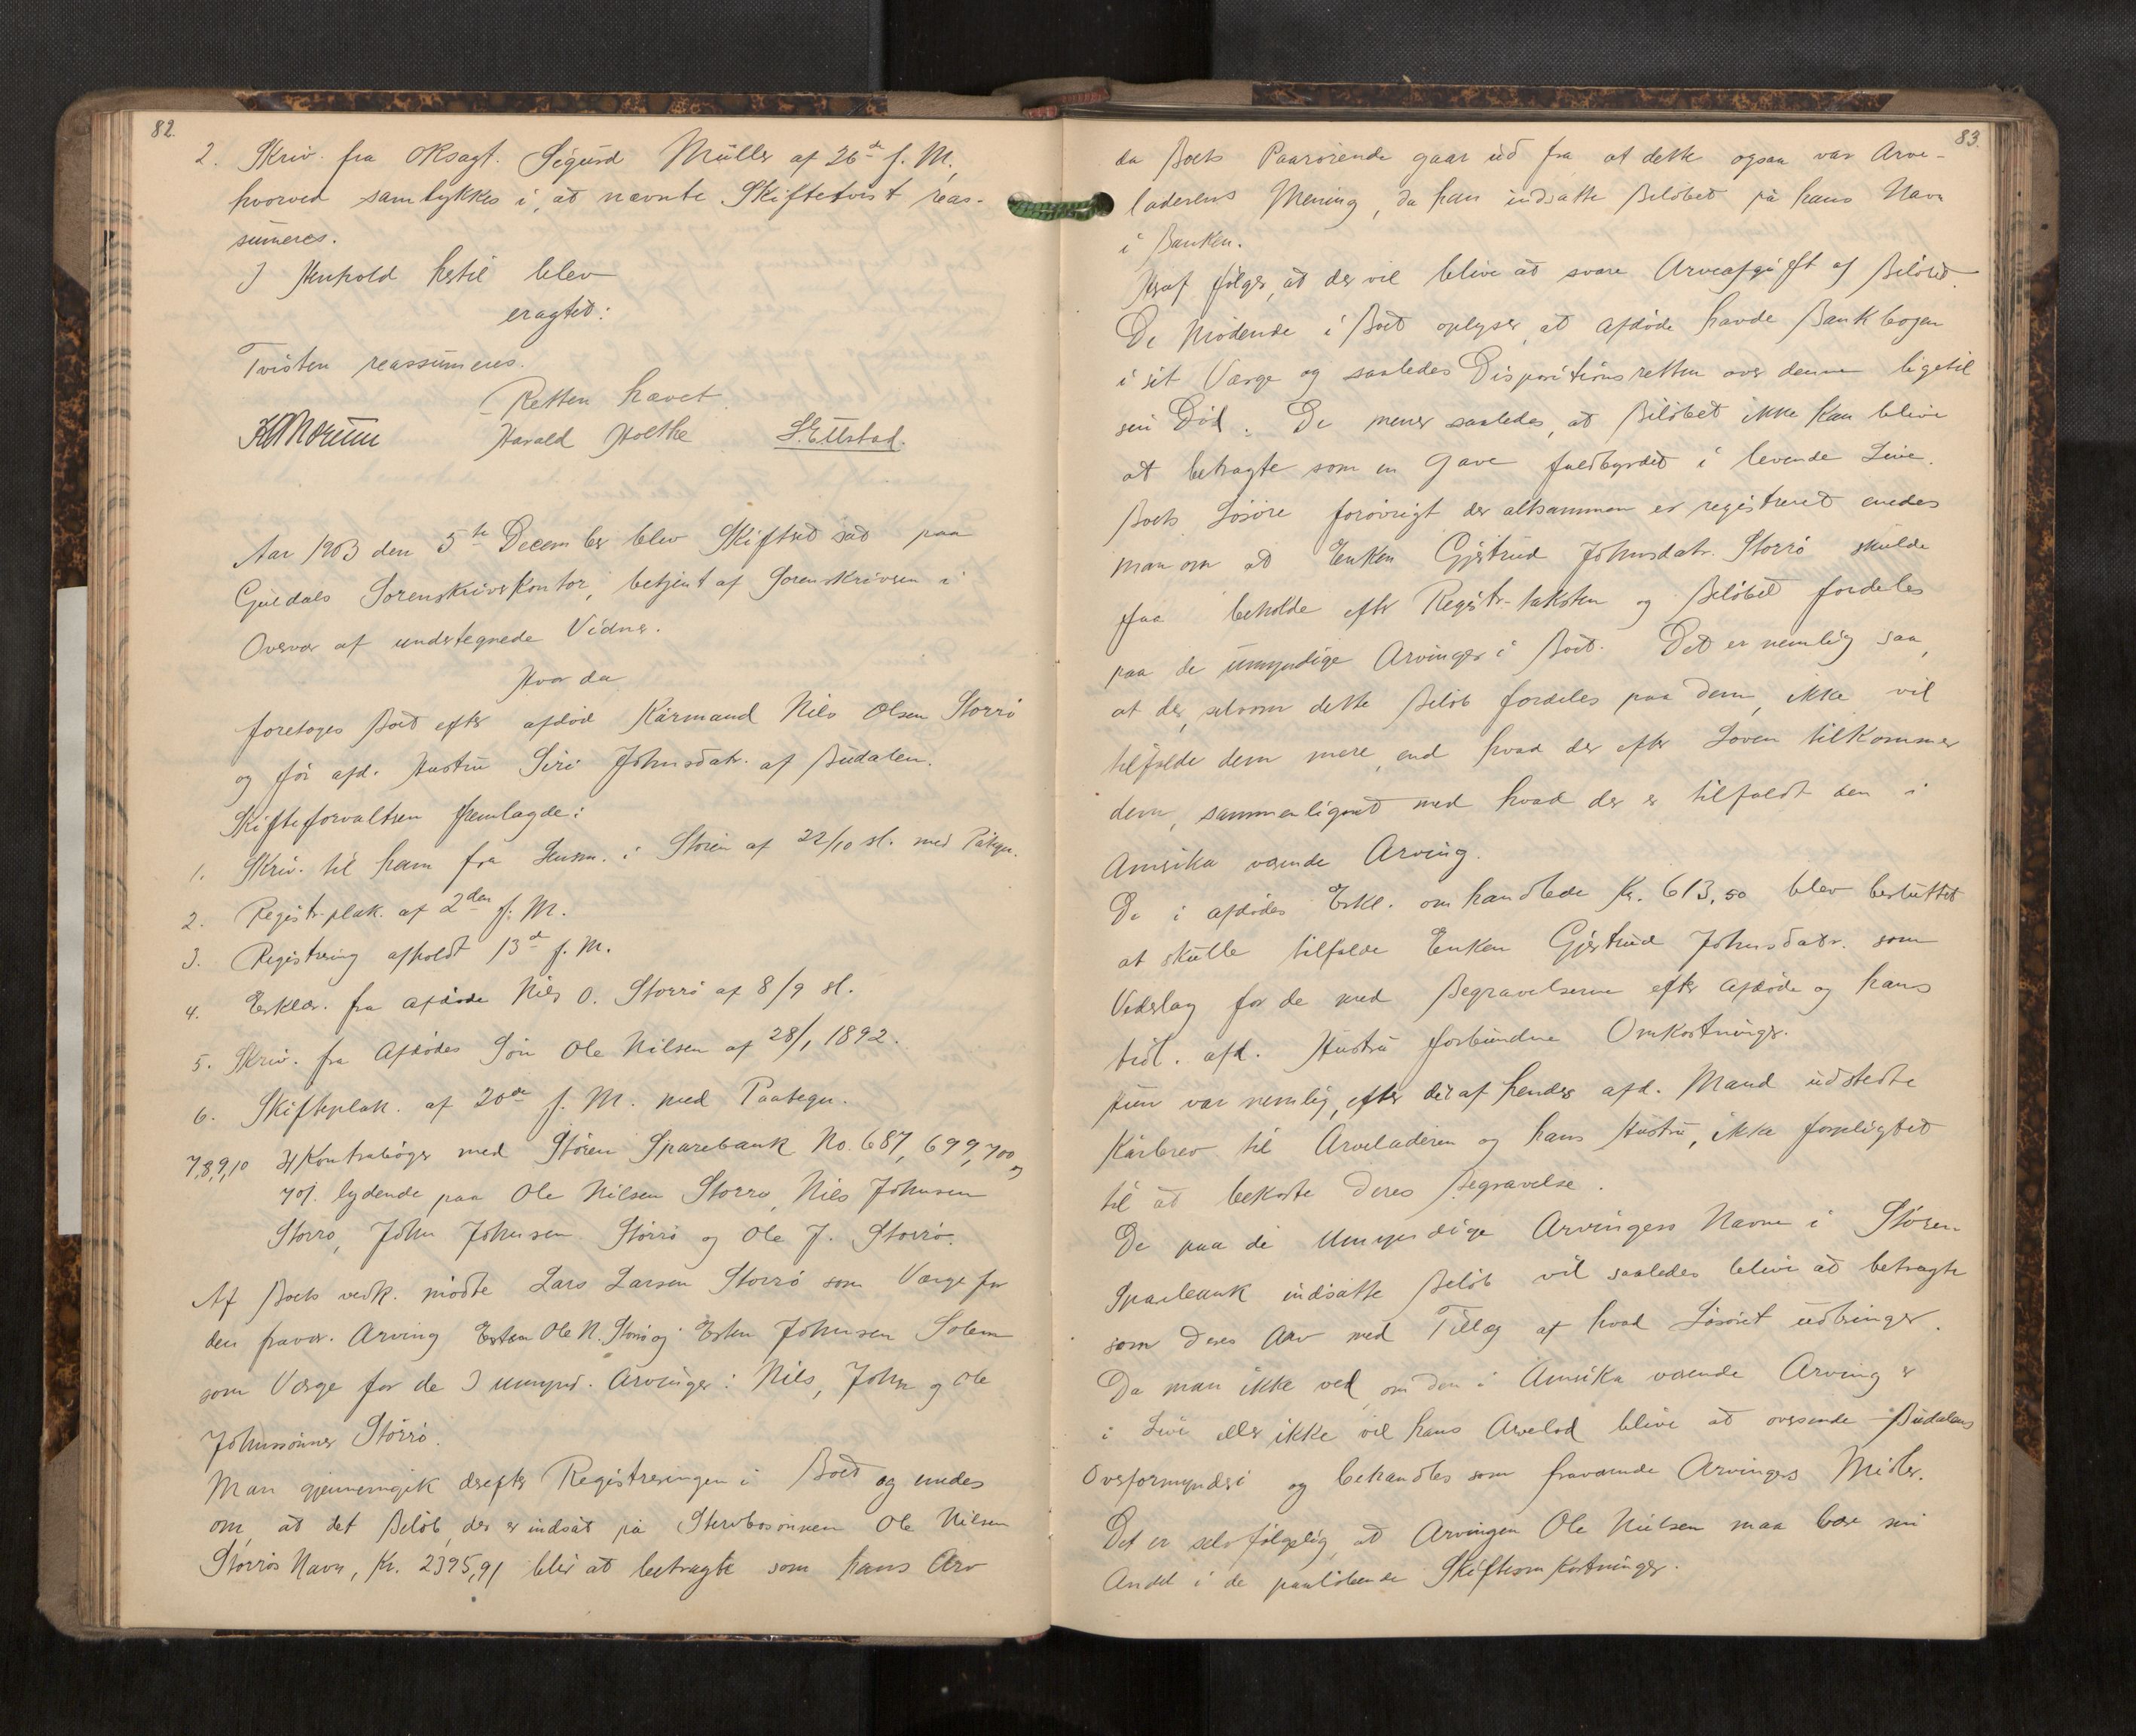 82.
2. Skriv. fra Oksagf. Sigurd Müller af 26de f. M,
hvorved samtykkes i, at nævnte Skiftetvist reas-
sumeres.
I Henhold hertil blev
eragtet:
Tvisten reassumeres.
Retten hævet
Harald Holthe
Aar 1903 den 5te December blev Skifteret sat paa
Guldals Sorenskriverkontor, betjent af Sorenskriveren i
Overvær af undertegnede Vidner.
Hvor da
foretoges Boet efter afdød Kårmand Nils Olsen Storrø
og før afd. Hustru Siri Johnsdatr. af Budalen.
Skifteforvalteren fremlagde:
1. Skriv. til ham fra Lensm. i Støren af 22/10 sl. med Påtegn.
2. Registr.plak. af 2den f. M.
3. Registrering afholdt 13de f. M.
4. Erklær. fra afdøde Nils O. Storrø af 8/9 sl.
5. Skriv. fra Afdødes Søn Ole Nilsen af 28/1 1892.
6. Skifteplak. af 20de f. M. med Paategn.
7,8,9,10 4 Kontrabøger med Støren Sparebank No. 687, 699, 700 og
701. lydende paa Ole Nilsen Storrø, Nils Johnsen
Storrø, John Johnsen Storrø og Ole J. Storrø.
Af Boets vedk. mødte Lars Larsen Storrø som Værge for
den fravær. Arving Ole N. Storrø og Esten Johnsen Solem
som Værge for de 3 umynd. Arvinger: Nils, John og Ole
Johnssønner Storrø.
Man gjennemgik derefter Registreringen i Boet og enedes
om, at det Beløb, der er indsat på Stervbosønnen Ole Nilsen
Storrøs Navn, Kr. 2395,91 blir at betragte som hans Arv
83.
da Boets Paarørende gaar ud fra at dette ogsaa var Arve-
laderens Mening, da han indsatte Beløbet på hans Navn
i Banken.
Heraf følger, at der vil blive at svare Arveafgift af Beløbet.
De Mødende i Boet oplyser, at Afdøde havde Bankbogen
i sit Værge og saaledes Dispositionsretten over denne ligetil
sin Død. De mener saaledes, at Beløbet ikke kan blive
at betragte som en Gave fuldbyrdet i levende Live.
Boets Løsøre forøvrigt der altsammen er registreret enedes
man om at Enken Gjertrud Johnsdatr. Storrø skulde
faa beholde efter Registr.taksten og Beløbet fordeles
paa de umyndige Arvinger i Boet. Det er nemlig saa,
at der, selvom dette Beløb fordeles paa dem, ikke vil
tilfalde dem mere, end hvad der efter Loven tilkommer
dem, sammenlignet med hvad der er tilfaldt den i
Amerika værende Arving.
De i afdødes Erkl. omhandlede Kr. 613,50 blev besluttet
at skulle tilfalde Enken Gjertrud Johnsdatr. som
Vederlag for de med Begravelserne efter Afdøde og hans
tidl. afd. Hustru forbundne Omkostninger.
Hun var nemlig, efter det af hendes afd. Mand udstedte
Kårbrev til Arveladeren og hans Hustru, ikke forpligtet
til at bekoste deres Begravelse.
De paa de umyndige Arvingers Navne i Støren
Sparebank indsatte Beløb vil saaledes blive at betragte
som deres Arv med Tillæg af hvad Løsøret udbringer.
Da man ikke ved, om den i Amerika værende Arving er
i Live eller ikke vil hans Arvelod blive at oversende Budalens
Overformynderi og behandles som fraværende Arvingers Midler.
Det er selvfølgelig, at Arvingen Ole Nielsen maa bære sin
Andel i de paaløbende Skifteomkostninger.